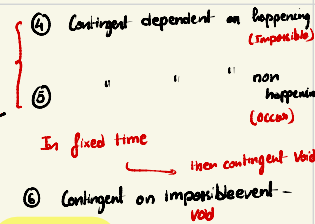 ④ Contingent dependent on happening
(Impossible)
⑤ " " " non
happening
(occur)
In fixed time
then contingent void
⑥ Contingent on impossible event –
void